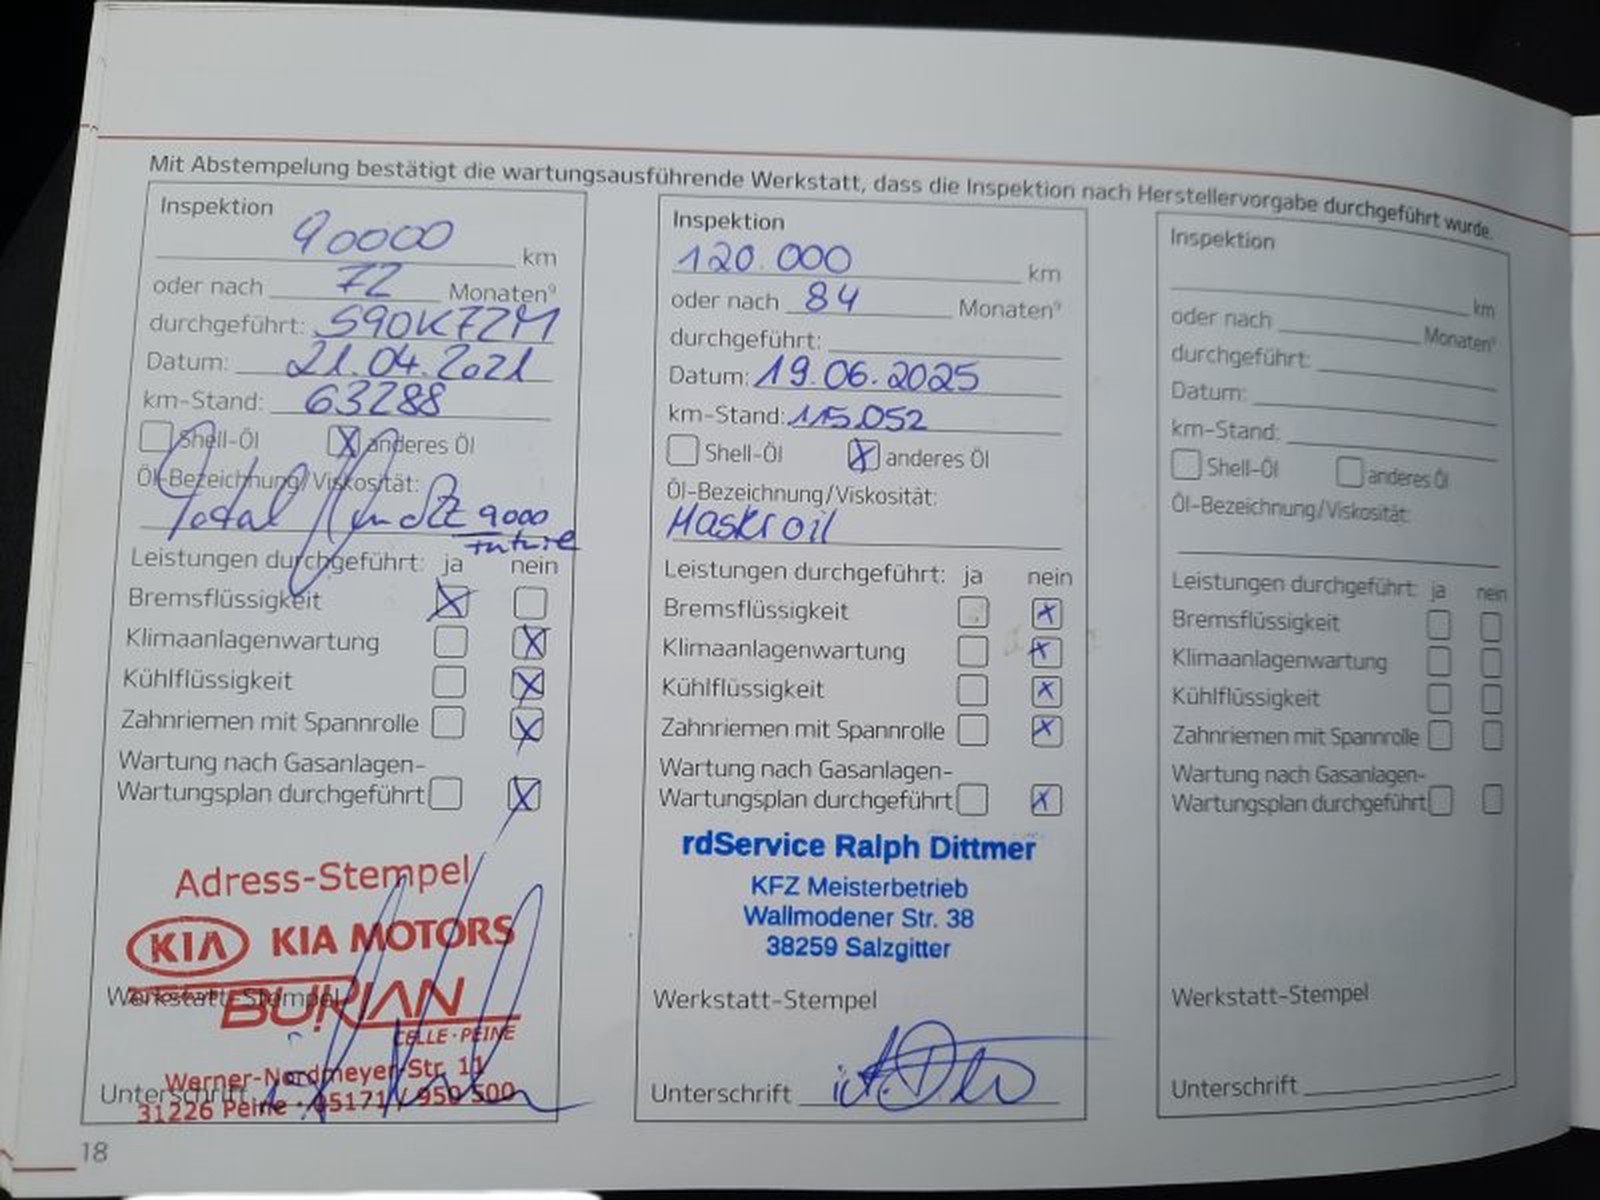 Mit Abstempelung bestätigt die wartungsausführende Werkstatt, dass die Inspektion nach Herstellervorgabe durchgeführt wurde.
Inspektion
90000 km
oder nach 72 Monaten⁹
durchgeführt: S90K72M
Datum: 21.04.2021
km-Stand: 63288
Shell-Öl X anderes Öl
Öl-Bezeichnung/Viskosität:
Total 9000
future
Leistungen durchgeführt: ja nein
Bremsflüssigkeit X
Klimaanlagenwartung X
Kühlflüssigkeit X
Zahnriemen mit Spannrolle X
Wartung nach Gasanlagen-
Wartungsplan durchgeführt X
Adress-Stempel
KIA KIA MOTORS
BURIAN
CELLE · PEINE
Werkstatt-Stempel
Werner-Nordmeyer-Str. 11
Unterschrift
31226 Peine · 05171 / 950 500
Inspektion
120.000 km
oder nach 84 Monaten⁹
durchgeführt:
Datum: 19.06.2025
km-Stand: 115.052
Shell-Öl X anderes Öl
Öl-Bezeichnung/Viskosität:
Maskroil
Leistungen durchgeführt: ja nein
Bremsflüssigkeit X
Klimaanlagenwartung X
Kühlflüssigkeit X
Zahnriemen mit Spannrolle X
Wartung nach Gasanlagen-
Wartungsplan durchgeführt X
rdService Ralph Dittmer
KFZ Meisterbetrieb
Wallmodener Str. 38
38259 Salzgitter
Werkstatt-Stempel
Unterschrift
Inspektion
km
oder nach Monaten⁹
durchgeführt:
Datum:
km-Stand:
Shell-Öl anderes Öl
Öl-Bezeichnung/Viskosität:
Leistungen durchgeführt: ja nein
Bremsflüssigkeit
Klimaanlagenwartung
Kühlflüssigkeit
Zahnriemen mit Spannrolle
Wartung nach Gasanlagen-
Wartungsplan durchgeführt
Werkstatt-Stempel
Unterschrift
18